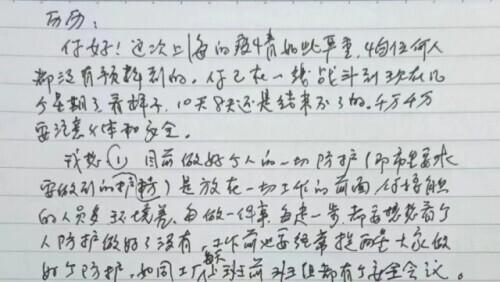 历历:
你好!这次上海的疫情如此严重,是任何人
都没有预料到的。你已在一线战斗到现在几
个星期了,看样子,10天8天还是结束不了的。千万千万
要注意身体和安全。
我想①目前做好个人的一切防护(即需要求
要做到的护) 是放在一切工作的前面,你接触
的人员复环境差,每做一件事,每走一步,都要想想看个
人防护做好了没有,工作前也要经常提醒大家做
好个防护,如同工厂每天班前班组都有个安全会议。